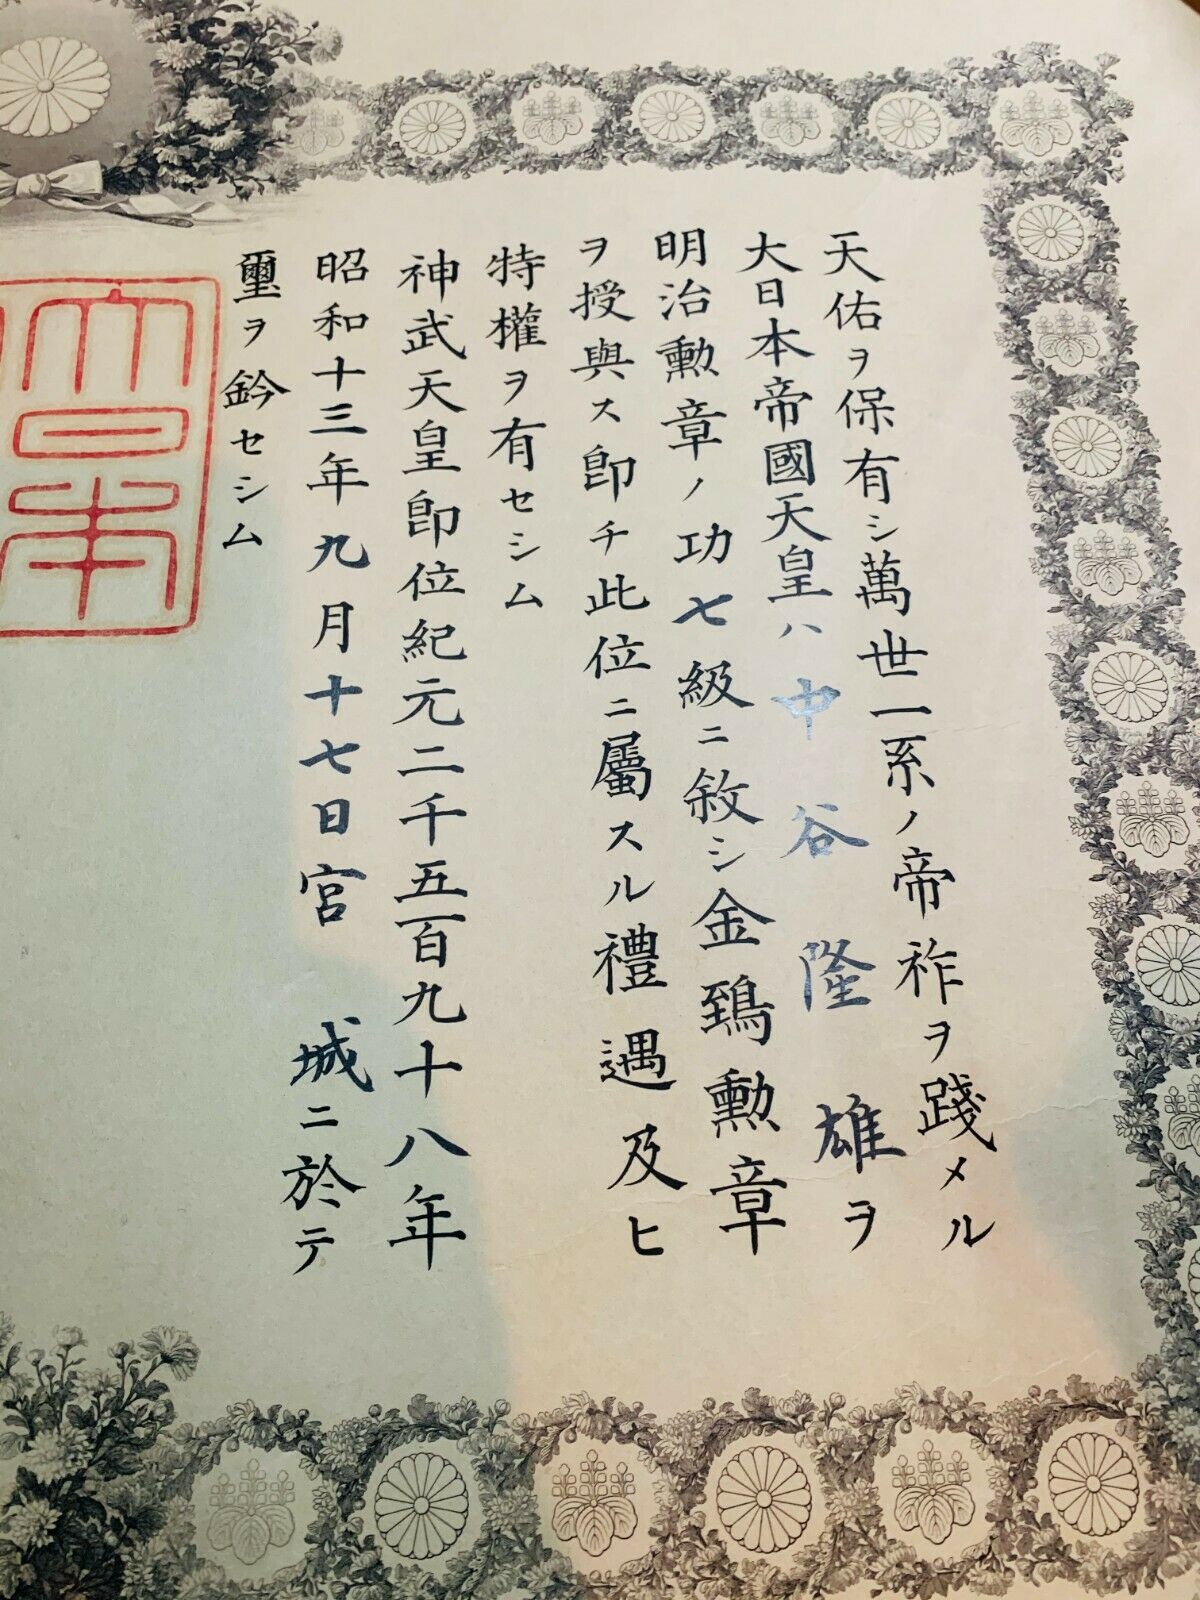 天佑ヲ保有シ萬世一系ノ帝祚ヲ踐メル
大日本帝國天皇ハ中谷隆雄ヲ
明治勲章ノ功七級ニ敘シ金鵄勲章
ヲ授與ス卽チ此位ニ屬スル禮遇及ヒ
特權ヲ有セシム
神武天皇卽位紀元二千五百九十八年
昭和十三年九月十七日宮城ニ於テ
璽ヲ鈐セシム
大日本